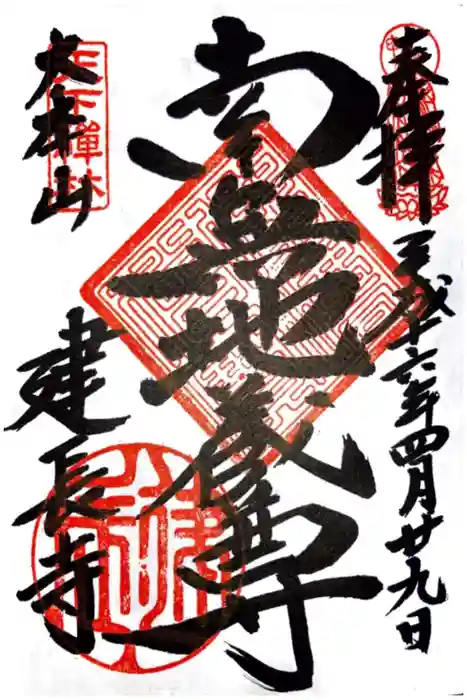 奉拝
平成十六年四月廿九日
南無地蔵尊
天下禅林
大本山
建長寺